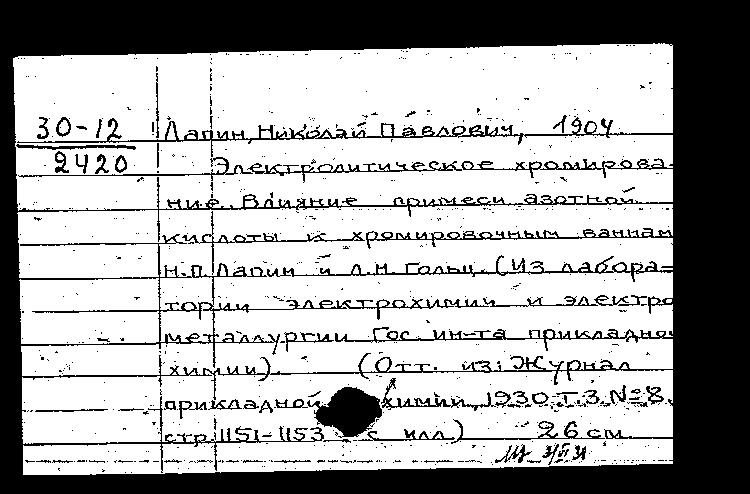 30-12 Лапин, Николай Павлович, 1904
2420 Электролитическое хромирова-
ние. Влияние примеси азотной
кислоты к хромировочным ваннам
Н.П. Лапин и Л.Н. Гольц. (Из лабора=
тории электрохимии и электро
металлургии Гос. ин-та прикладной
химии). (Отт. из: Журнал
прикладной химии, 1930, Т.3. №8.
стр. 1151-1153 с илл.) 26 см.